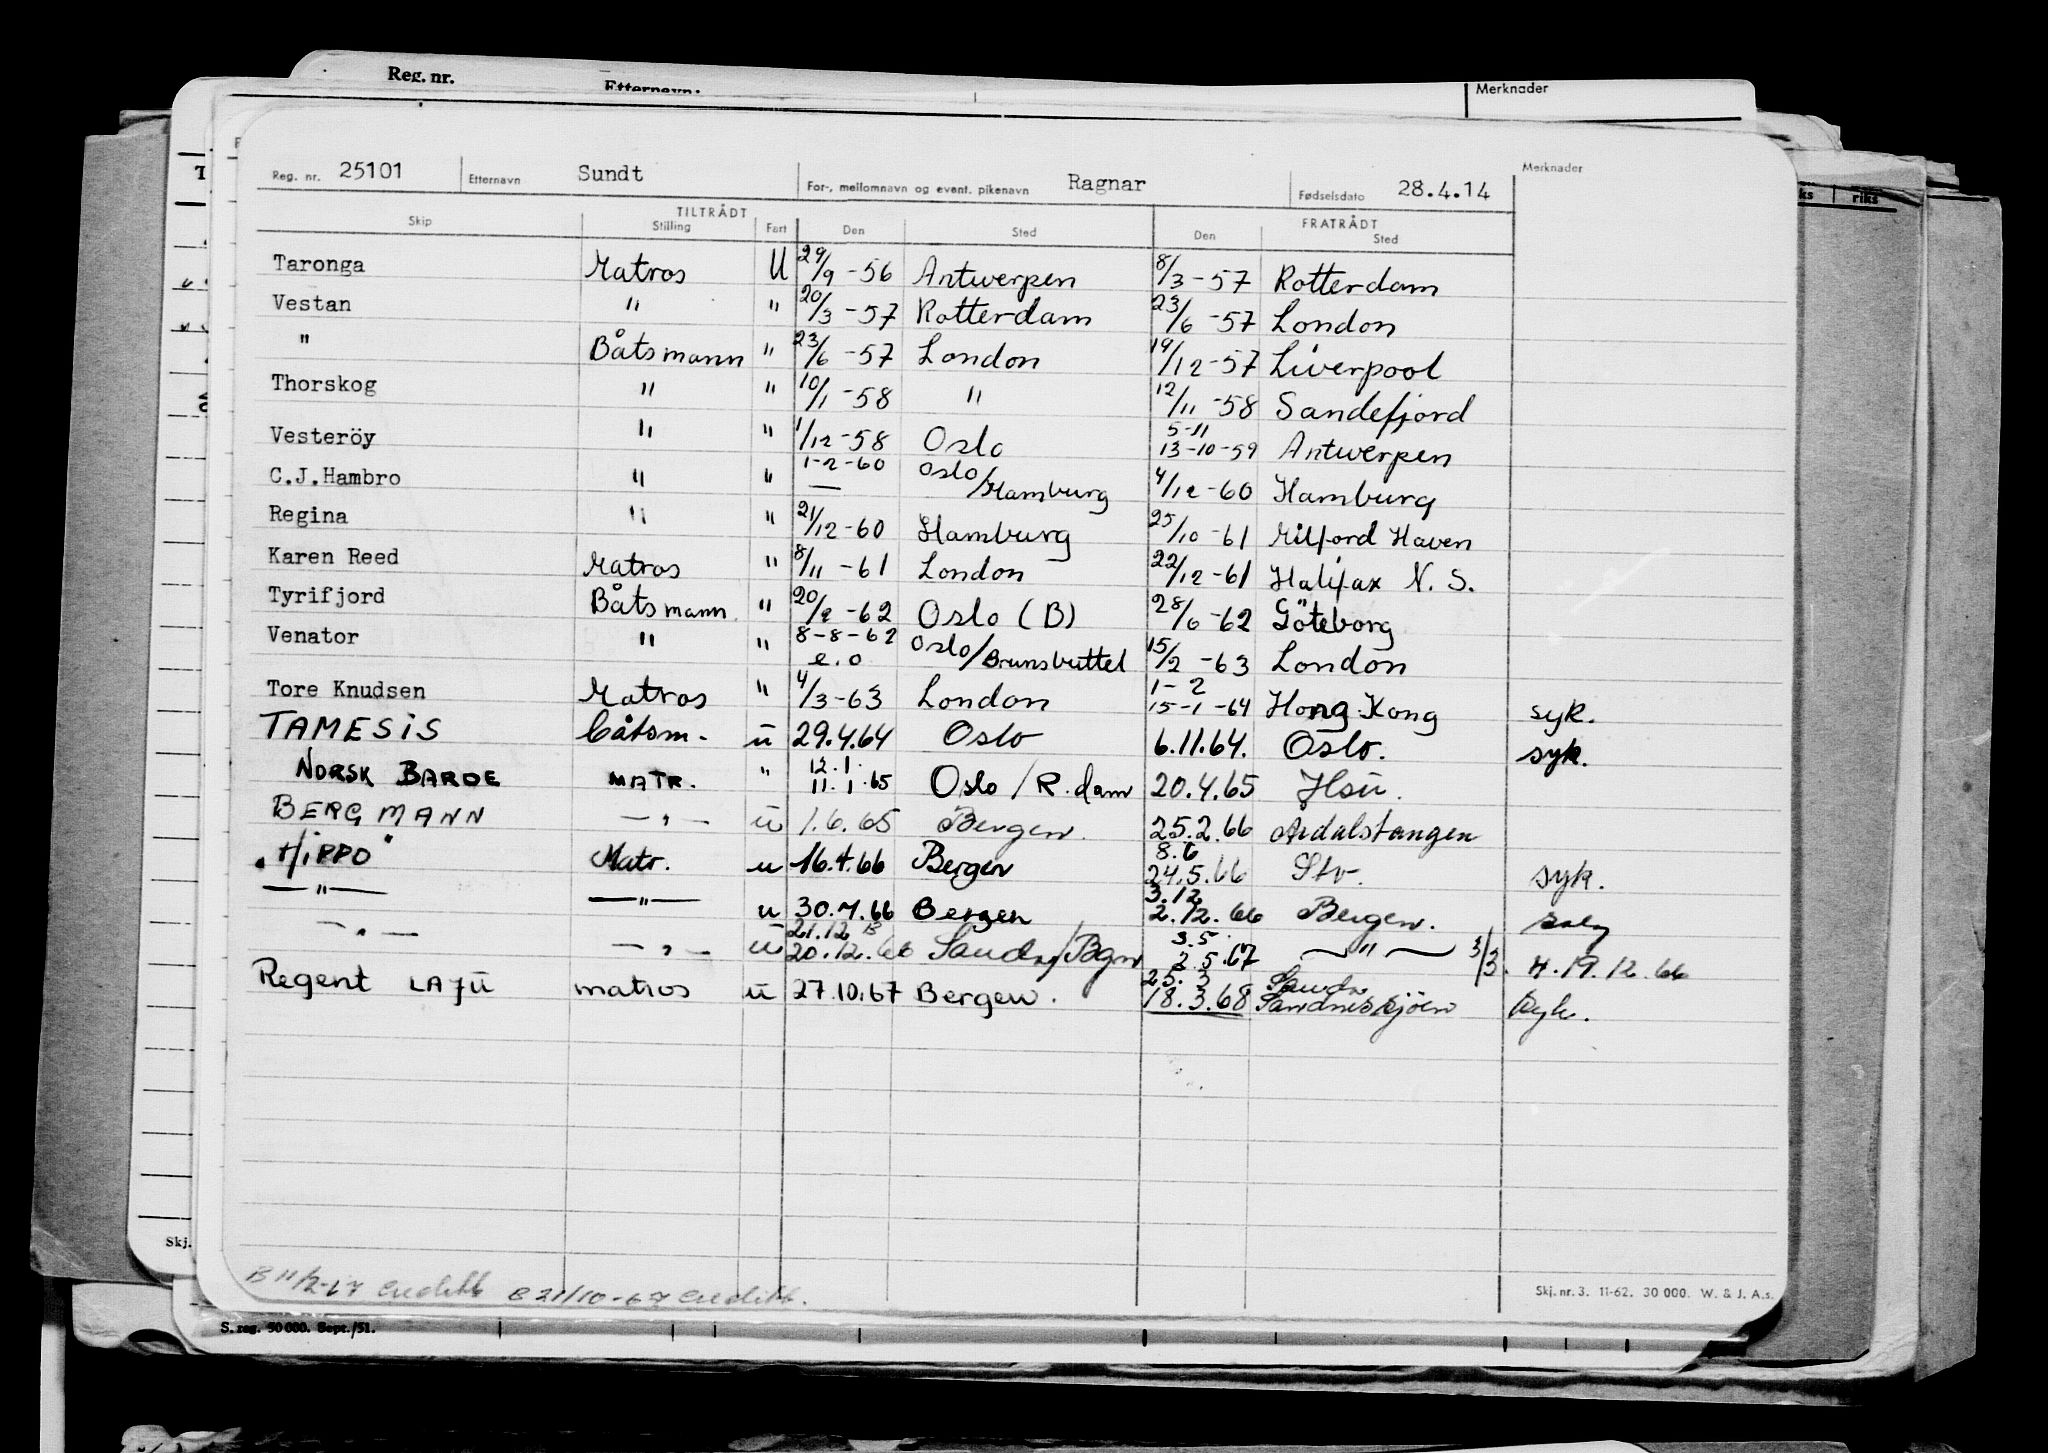 Reg. nr. Etternavn: Merknader
Reg. nr. 25101 Etternavn Sundt For-, mellomnavn og event. pikenavn Ragnar Fødselsdato 28.4.14 Merknader
TILTRÅDT FRATRÅDT
Skip Stilling Fart Den Sted Den Sted
Taronga Matros U 29/9-56 Antwerpen 8/3-57 Rotterdam
Vestan " " 20/3-57 Rotterdam 23/6-57 London
" Båtsmann " 23/6-57 London 19/12-57 Liverpool
Thorskog " " 10/1-58 " 12/11-58 Sandefjord
5-11
Vesteröy " " 1/12-58 Oslo 13-10-59 Antwerpen
C.J.Hambro " " 1-2-60 Oslo/Hamburg 4/12-60 Hamburg
Regina " " 21/12-60 Hamburg 25/10-61 Milford Haven
Karen Reed Matros " 8/11-61 London 22/12-61 Halifax N.S.
Tyrifjord Båtsmann " 20/2-62 Oslo (B) 28/6-62 Göteborg
Venator " " 8-8-62 e.o Oslo/Brunsbuttel 15/2-63 London
1-2
Tore Knudsen Matros " 4/3-63 London 15-1-64 Hong Kong syk.
TAMESIS båtsm. u 29.4.64 Oslo 6.11.64. Oslo. syk.
12.1.
NORSK BARDE MATR. " 11.1.65 Oslo / R.dam 20.4.65 Hsu.
BERGMANN —"— u 1.6.65 Bergen. 25.2.66 Årdalstangen
8.6
"HIPPO" Matr. u 16.4.66 Bergen 24.5.66 Stv. syk.
3.12
—"— —"— u 30.7.66 Bergen 2.12.66 Bergen.
21.12 B 3.5.
—"— —"— u 20.12.66 Sauda/Bgn 2.5.67 —"— 3/3. H.19.12.66
25.3 Sauda
Regent LAJU matros u 27.10.67 Bergen. 18.3.68 Sandnessjøen syk.
B 11/2-67 B 21/10-67
Skj. nr. 3. 11-62. 30 000. W. & J. A.s.
Skj.
S. reg. 50 000. Sept./51.